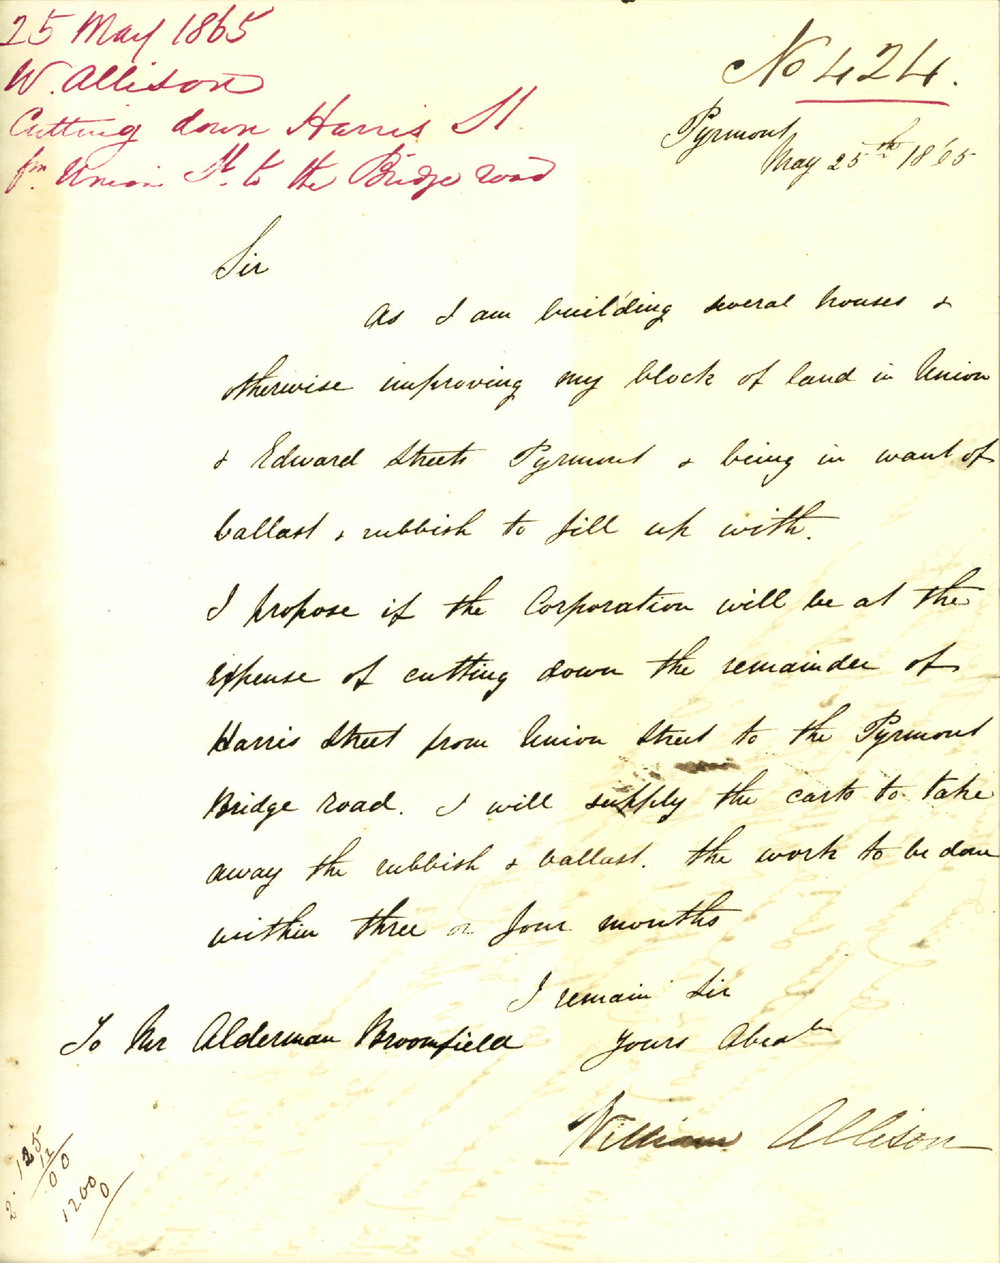 25 May 1865
W. Allison
Cutting down Harris St.
fm. Union St. to the Bridge road
No 424.
Pyrmont
May 25th 1865
Sir
As I am building several houses &
otherwise improving my block of land in Union
& Edward Streets Pyrmont & being in want of
ballast & rubbish to fill up with.
I propose if the Corporation will be at the
expense of cutting down the remainder of
Harris Street from Union Street to the Pyrmont
Bridge road. I will supply the carts to take
away the rubbish & ballast. the work to be done
within three or four months
I remain Sir
Yours Obedt
To Mr Alderman Broomfield
William Allison
125
12
00
1200
0